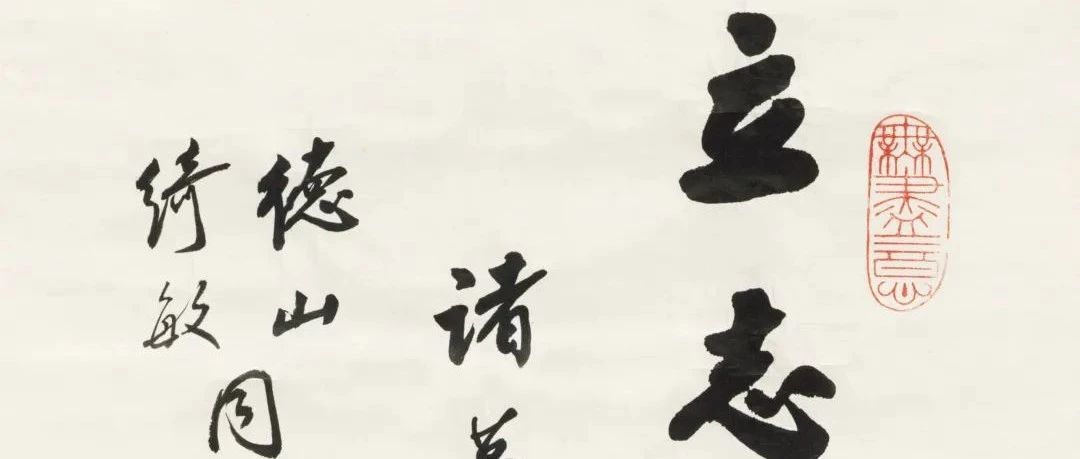 立志
诸
德山
绮敏
同